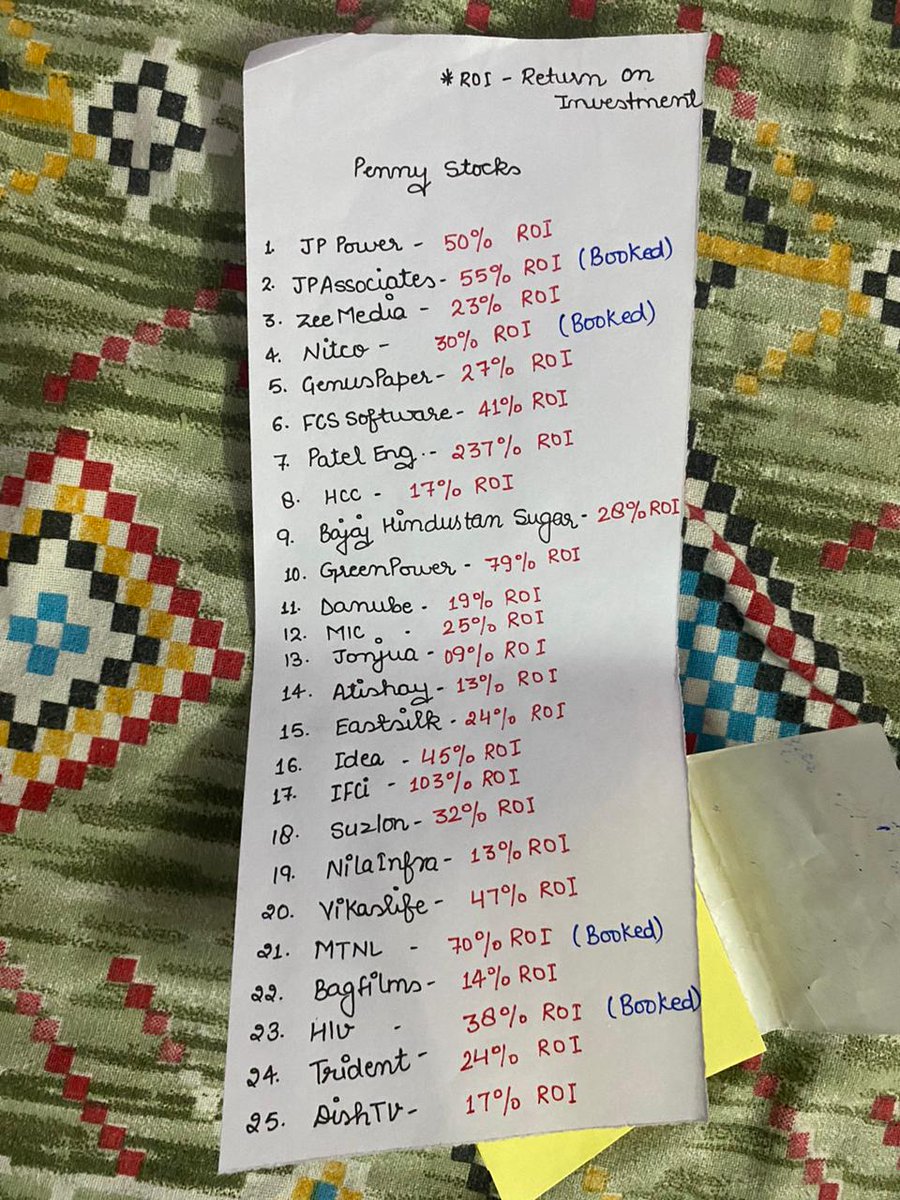 *ROI - Return on
Investment
Penny Stocks
1. JP Power - 50% ROI
2. JPAssociates - 55% ROI (Booked)
3. Zee Media - 23% ROI
4. Nitco - 30% ROI (Booked)
5. GenusPaper - 27% ROI
6. FCS Software - 41% ROI
7. Patel Eng. - 237% ROI
8. HCC - 17% ROI
9. Bajaj Hindustan Sugar - 28% ROI
10. GreenPower - 79% ROI
11. Danube - 19% ROI
12. MIC - 25% ROI
13. Jonjua - 09% ROI
14. Atishay - 13% ROI
15. Eastsilk - 24% ROI
16. Idea - 45% ROI
17. IFCi - 103% ROI
18. Suzlon - 32% ROI
19. NilaInfra - 13% ROI
20. Vikaslife - 47% ROI
21. MTNL - 70% ROI (Booked)
22. Bagfilms - 14% ROI
23. HIV - 38% ROI (Booked)
24. Trident - 24% ROI
25. DishTV - 17% ROI